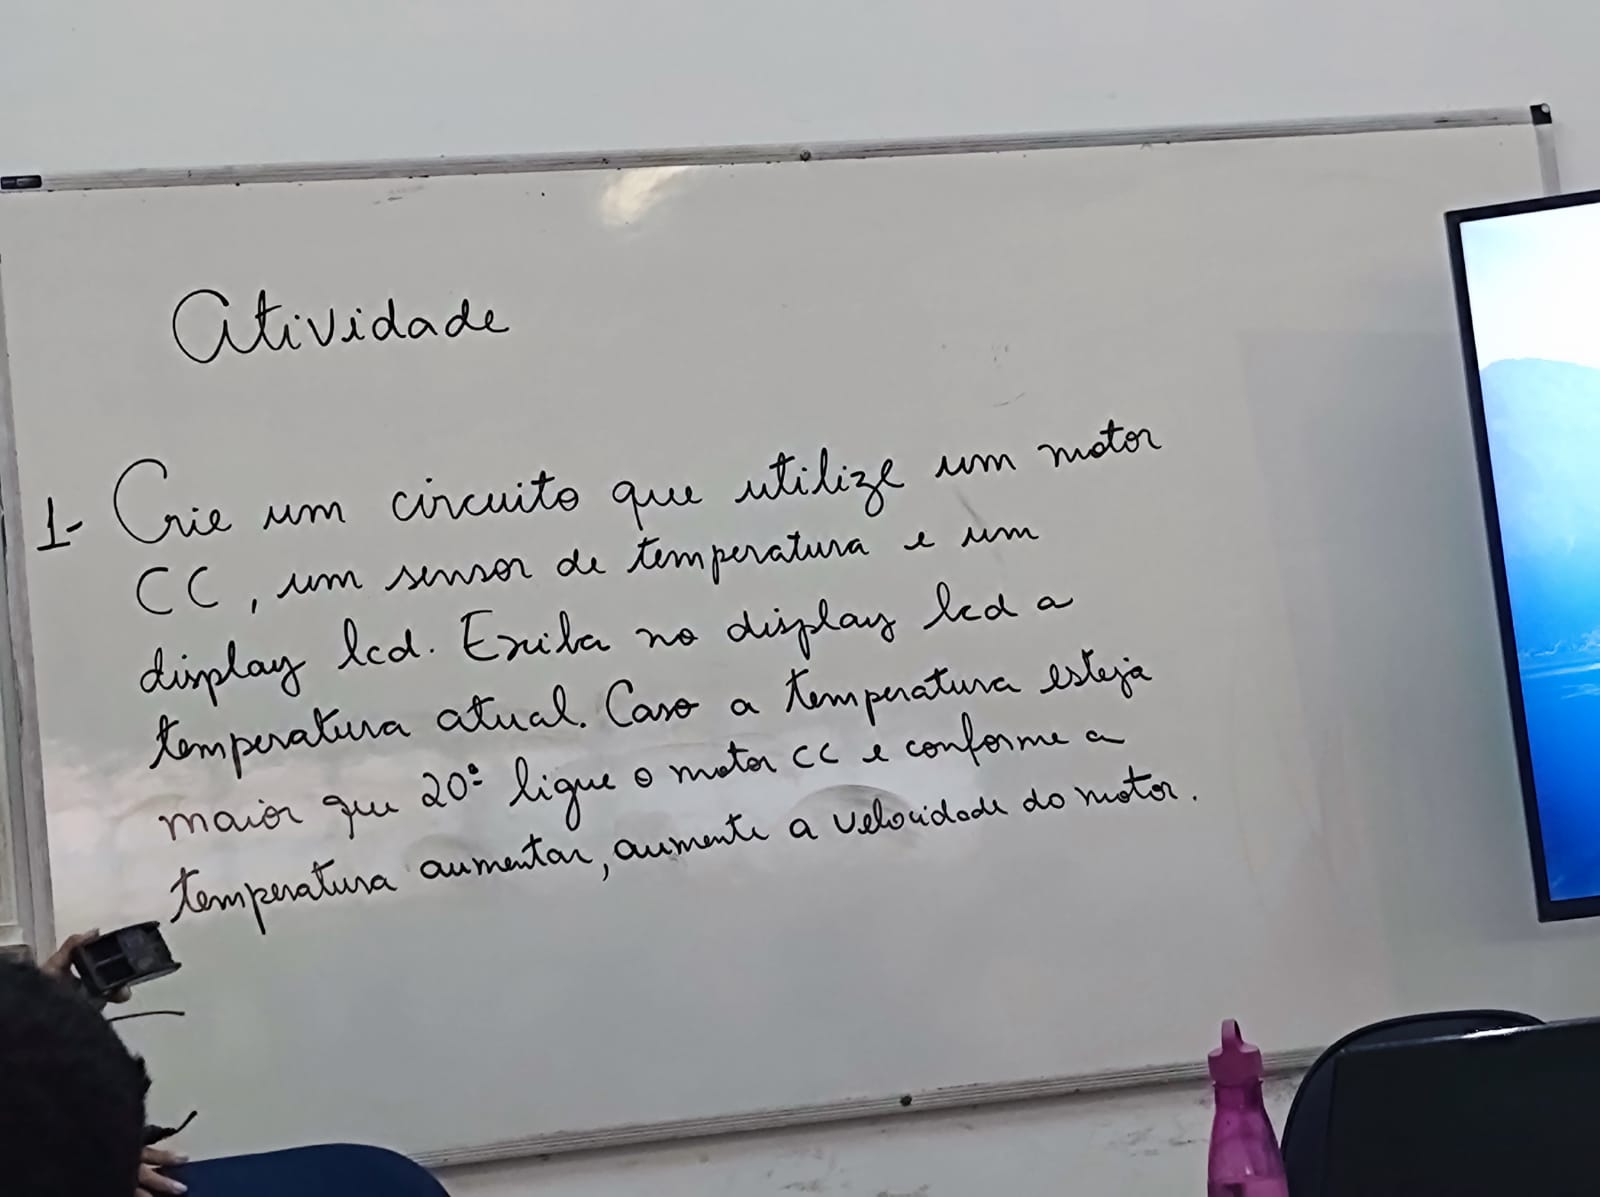 Atividade
1- Crie um circuito que utilize um motor
CC, um sensor de temperatura e um
display lcd. Exiba no display lcd a
temperatura atual. Caso a temperatura esteja
maior que 20° ligue o motor CC e conforme a
temperatura aumentar, aumente a velocidade do motor.